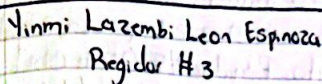 Yinmi Lazembi Leon Espinoza
Regidor #3